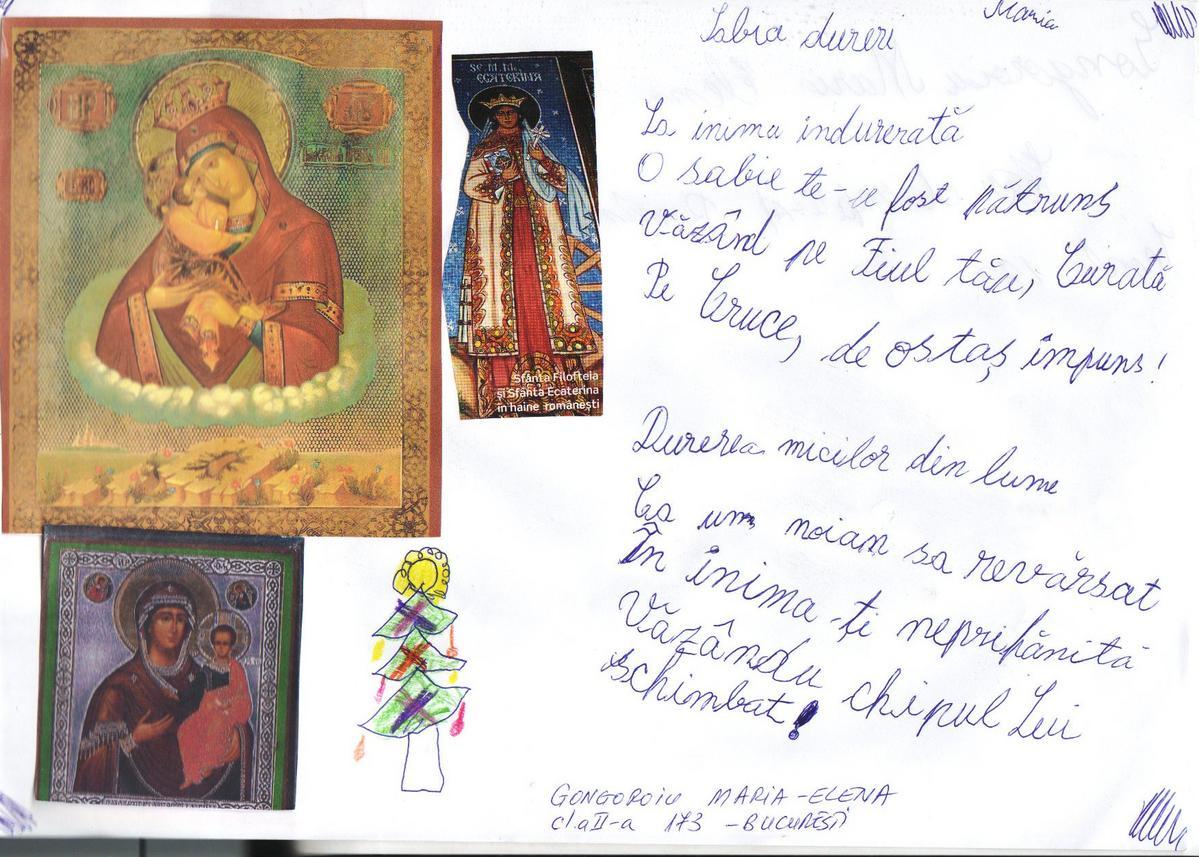 Maria
Sabia dureri
SF. M. MC.
ECATERINA
Sfânta Filofteia
și Sfânta Ecaterina
în haine românești
La inima indurerată
O sabie te-a fost pătruns
Văzând pe Fiul tău, Curată
Pe Cruce, de ostaș împuns!
Durerea micilor din lume
Ca um noian sa revărsat
În inima-ți neprihănită
Văzându chipul Lui
schimbat!
GONGOROIU MARIA-ELENA
cl.a II-a 173 - BUCUREȘTI